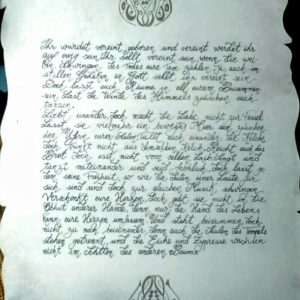 Ihr wurdet vereint geboren, und vereint werdet ihr
auf ewig sein. Ihr sollt vereint sein, wenn die wei-
ßen Schwingen des Todes eure Tage zählen. Ja, auch im
stillen Gedenken an Gott sollt ihr vereint sein.
Doch lasst auch Räume in all eurem Beisammen-
sein. Lasst die Winde des Himmels zwischen euch
tanzen.
Liebt einander, doch macht die Liebe nicht zur Fessel.
Lasst sie vielmehr ein bewegtes Meer sein zwischen
den Ufern eurer Seelen. Füllt euch einander die Kelche,
doch trinkt nicht aus demselben Kelch. Reicht euch das
Brot, doch esst nicht vom selben Laib. Singt und
tanzt miteinander und seid fröhlich, doch lasst je-
dem seine Freiheit, so wie die Saiten einer Laute für
sich sind und doch zur gleichen Musik schwingen.
Verschenkt eure Herzen, doch gebt sie nicht in die
Obhut anderer Hände, denn nur die Hand des Lebens
kann eure Herzen umfassen. Und steht beisammen, doch
nicht zu nah beieinander, denn auch die Säulen des Tempels
stehen getrennt, und die Eiche und Zypresse wachsen
nicht im Schatten des anderen Baums.